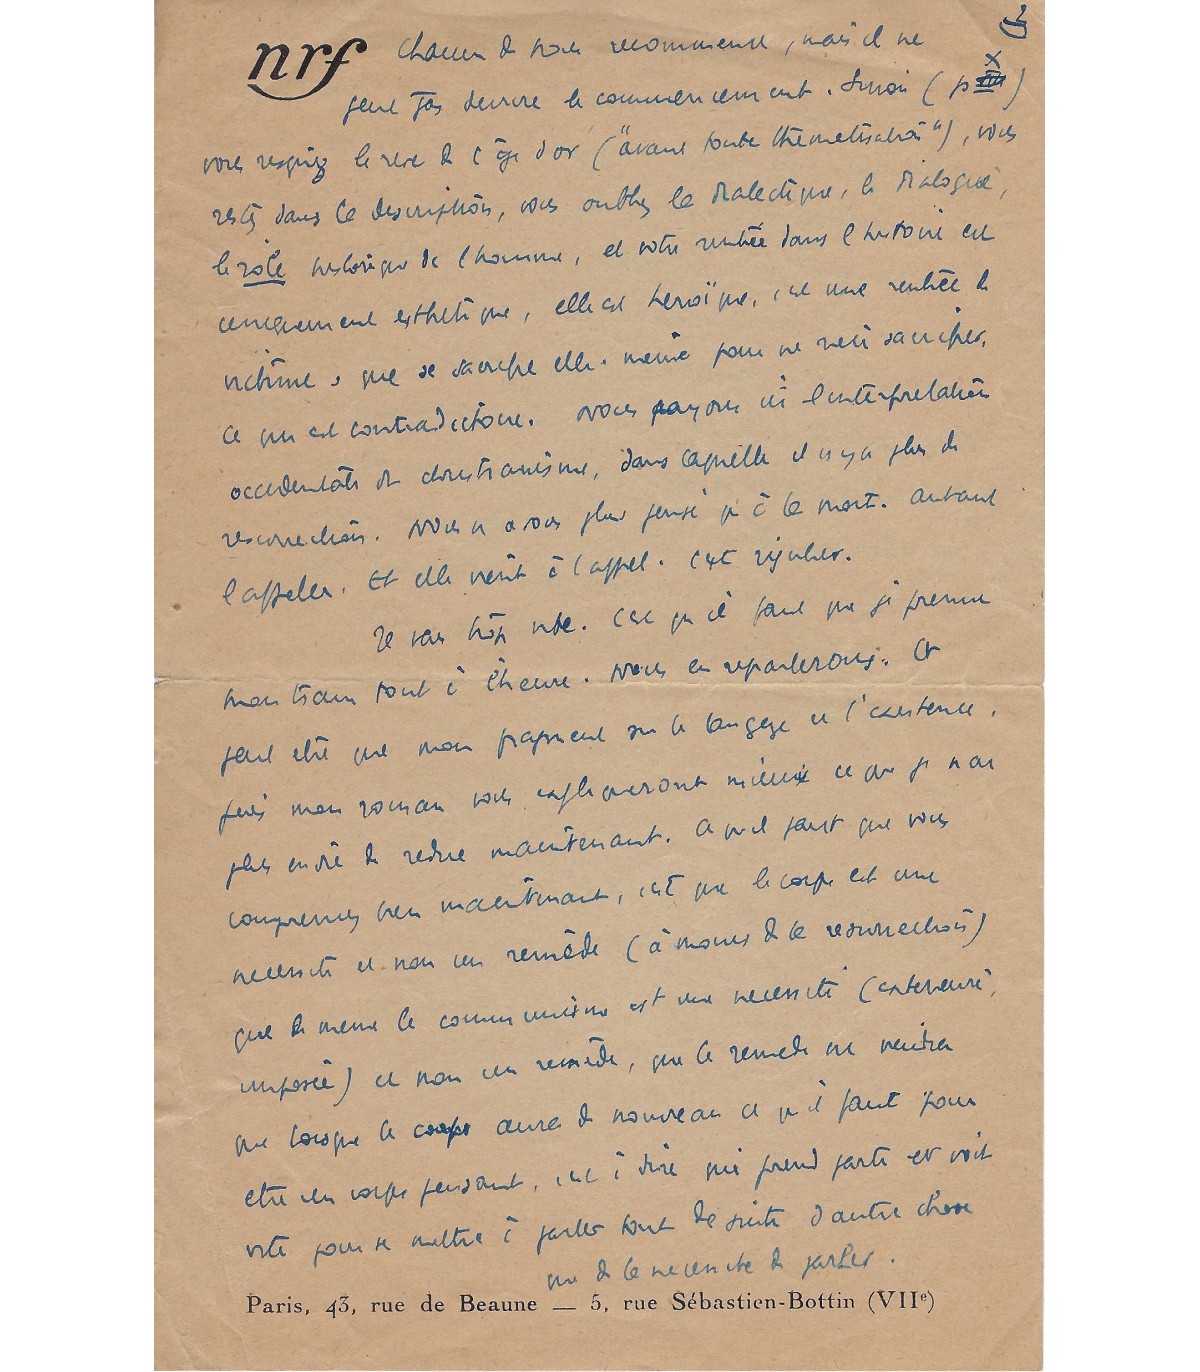 nrf
Chacun de nous recommence, mais il ne
peut pas décrire le commencement. Sinon (p X)
vous respirez le rêve de l'âge d'or ("avant toute thématisation"), vous
restez dans la description, vous oubliez la dialectique, le dialogue,
le rôle historique de l'homme, et votre rentrée dans l'histoire est
uniquement esthétique, elle est héroïque, c'est une rentrée de
victime, que se sacrifie elle-même pour ne rien sacrifier,
ce qui est contradictoire. Nous payons ici l'interprétation
occidentale du christianisme, dans laquelle il n'y a plus de
résurrection. Nous n'avons plus pensé qu'à la mort. Autant
l'appeler. Et elle vient à l'appel. C'est régulier.
Je vais trop vite. C'est qu'il faut que je prenne
mon train tout à l'heure. Nous en reparlerons. Et
peut être que mon fragment sur le langage et l'existence,
puis mon roman vous expliqueront mieux ce que je n'ai
plus envie de redire maintenant. Ce qu'il faut que vous
compreniez bien maintenant, c'est que le corps est une
nécessité et non un remède (à moins de la résurrection)
que de même le communisme est une nécessité (extérieure,
imposée) et non un remède, que le remède ne viendra
que lorsque le corps aura de nouveau ce qu'il faut pour
être un corps pensant, c'est à dire qui prend parti et voit
vite pour se mettre à parler tout de suite d'autre chose
que de la nécessité de parler.
Paris, 43, rue de Beaune — 5, rue Sébastien-Bottin (VIIe)